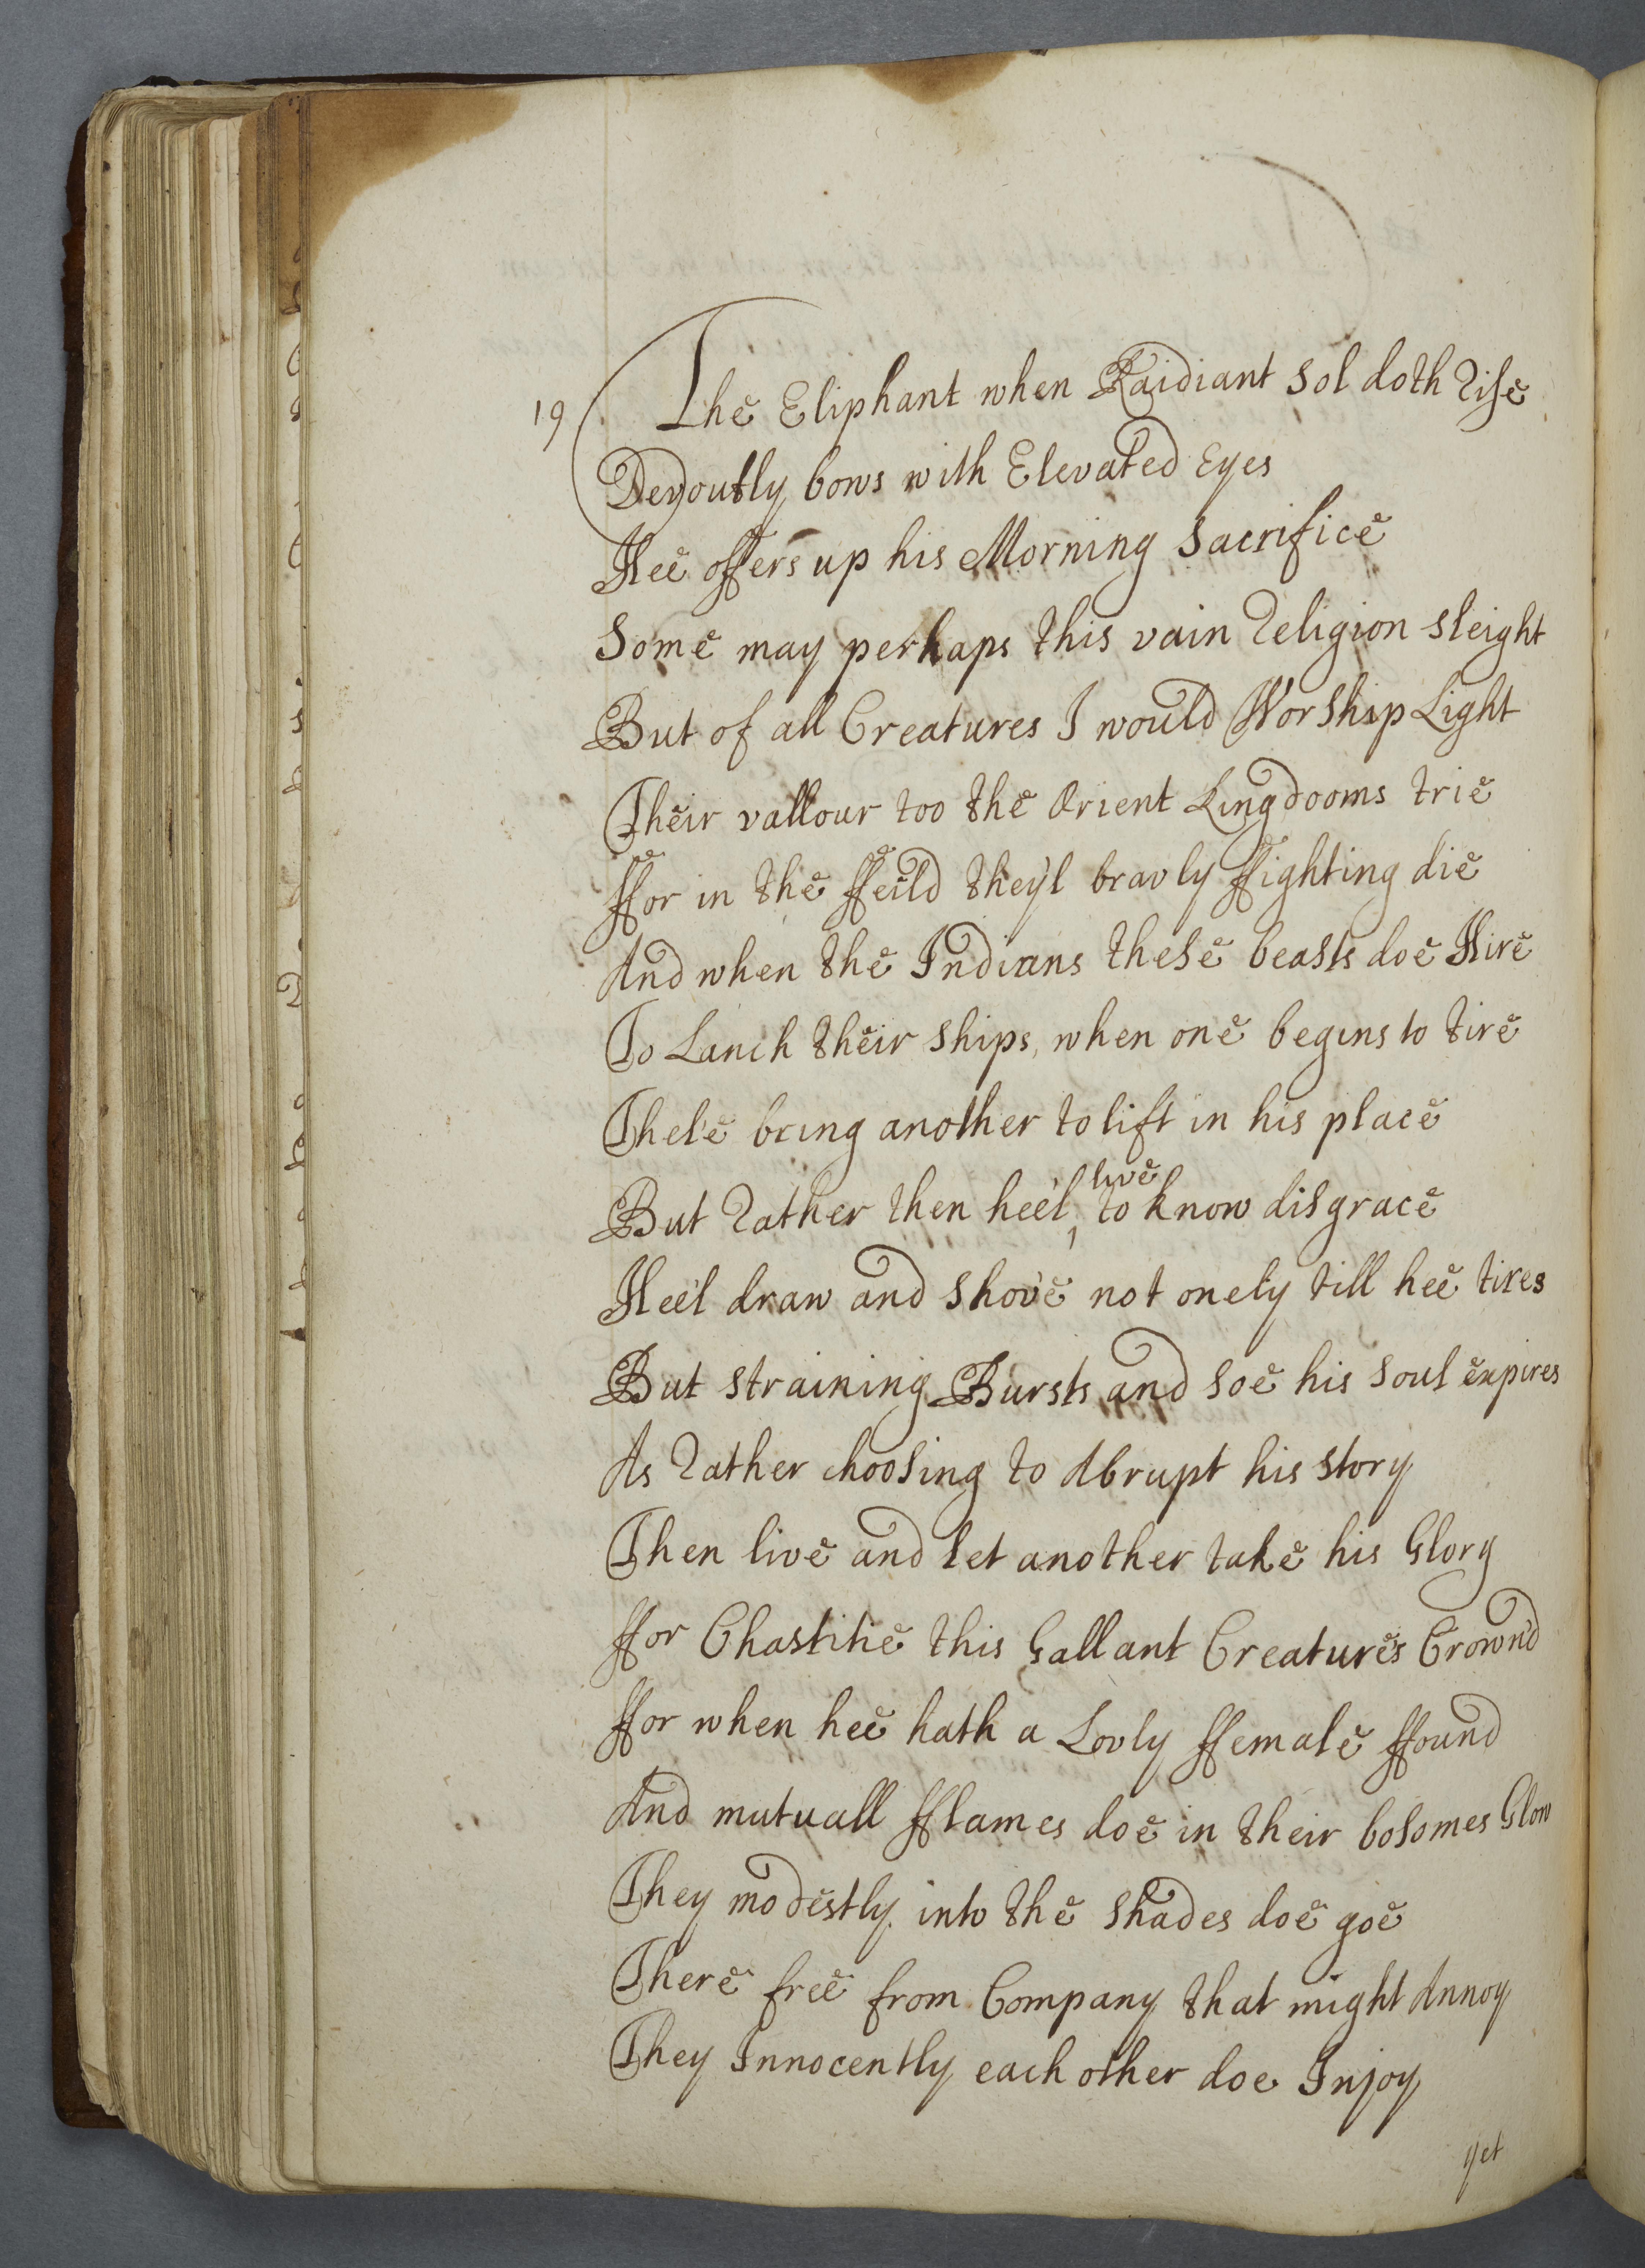 19 The Eliphant when Raidiant Sol doth Rise
Devoutly bows with Elevated Eyes
Hee offers up his Morning Sacrifice
Some may perhaps this vain Religion sleight
But of all Creatures I would Worship Light
Their vallour too the Orient Kingdooms trie
ffor in the ffeild they'l bravly ffighting die
And when the Indians these beasts doe Hire
To Lanch their ships, when one begins to tire
Thel'e bring another to lift in his place
But Rather then hee'l live to know disgrace
Hee'l draw and shove not onely till hee tires
But straining Bursts and soe his soul expires
As Rather choosing to Abrupt his story
Then live and let another take his Glory
ffor Chastitie this Gallant Creature's Crown'd
ffor when hee hath a Lovly ffemale ffound
And mutuall fflames doe in their bosomes Glow
They modestly into the shades doe goe
There free from Company that might Annoy
They Innocently each other doe Injoy
yet